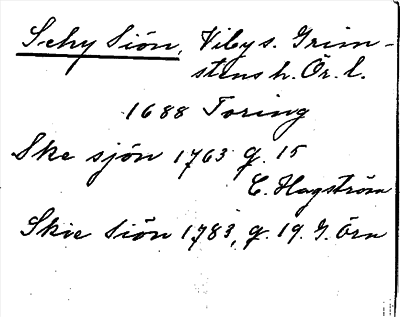 Schy Siön, Viby s. Grim-
stens h. Ör. l.
1688 Toring
Ske sjön 1763 q. 15
C. Hagström
Skie Siön 1783, q. 19. G. Örn